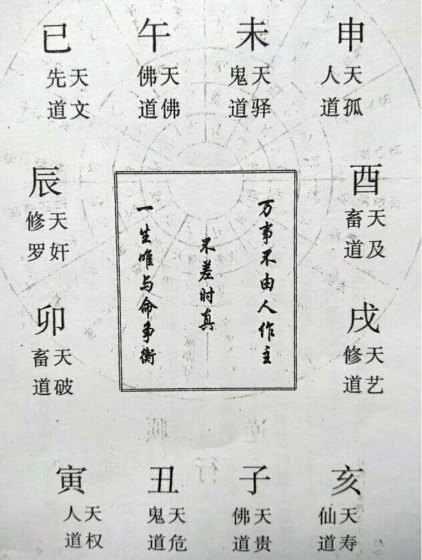 已
天文
先道
午
天佛
佛道
未
天驿
鬼道
申
天孤
人道
辰
天奸
修罗
酉
天及
畜道
万事不由人作主
不差时真
一生唯与命争衡
卯
天破
畜道
戌
天艺
修道
寅
天权
人道
丑
天危
鬼道
子
天贵
佛道
亥
天寿
仙道